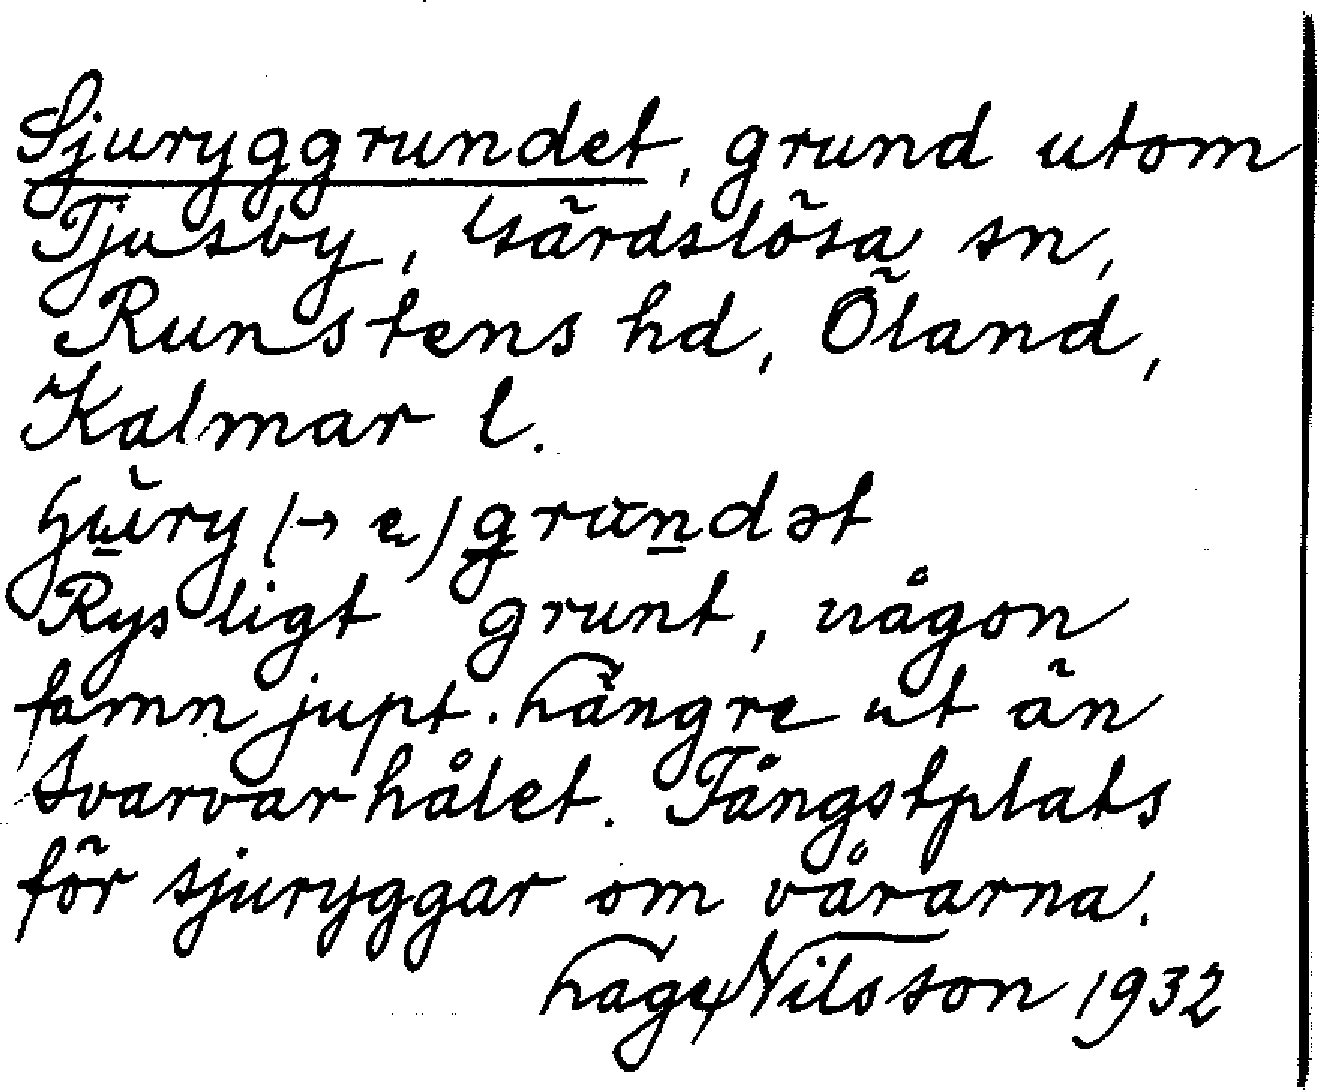 Sjuryggrundet, grund utom
Tjusby, Gärdslösa sn,
Runstens hd, Öland,
Kalmar l.
grundət
Rysligt grunt, någon
famn jupt. Längre ut än
Svarvarhålet. Fångstplats
för sjuryggar om vårarna.
Hage Nilsson 1932